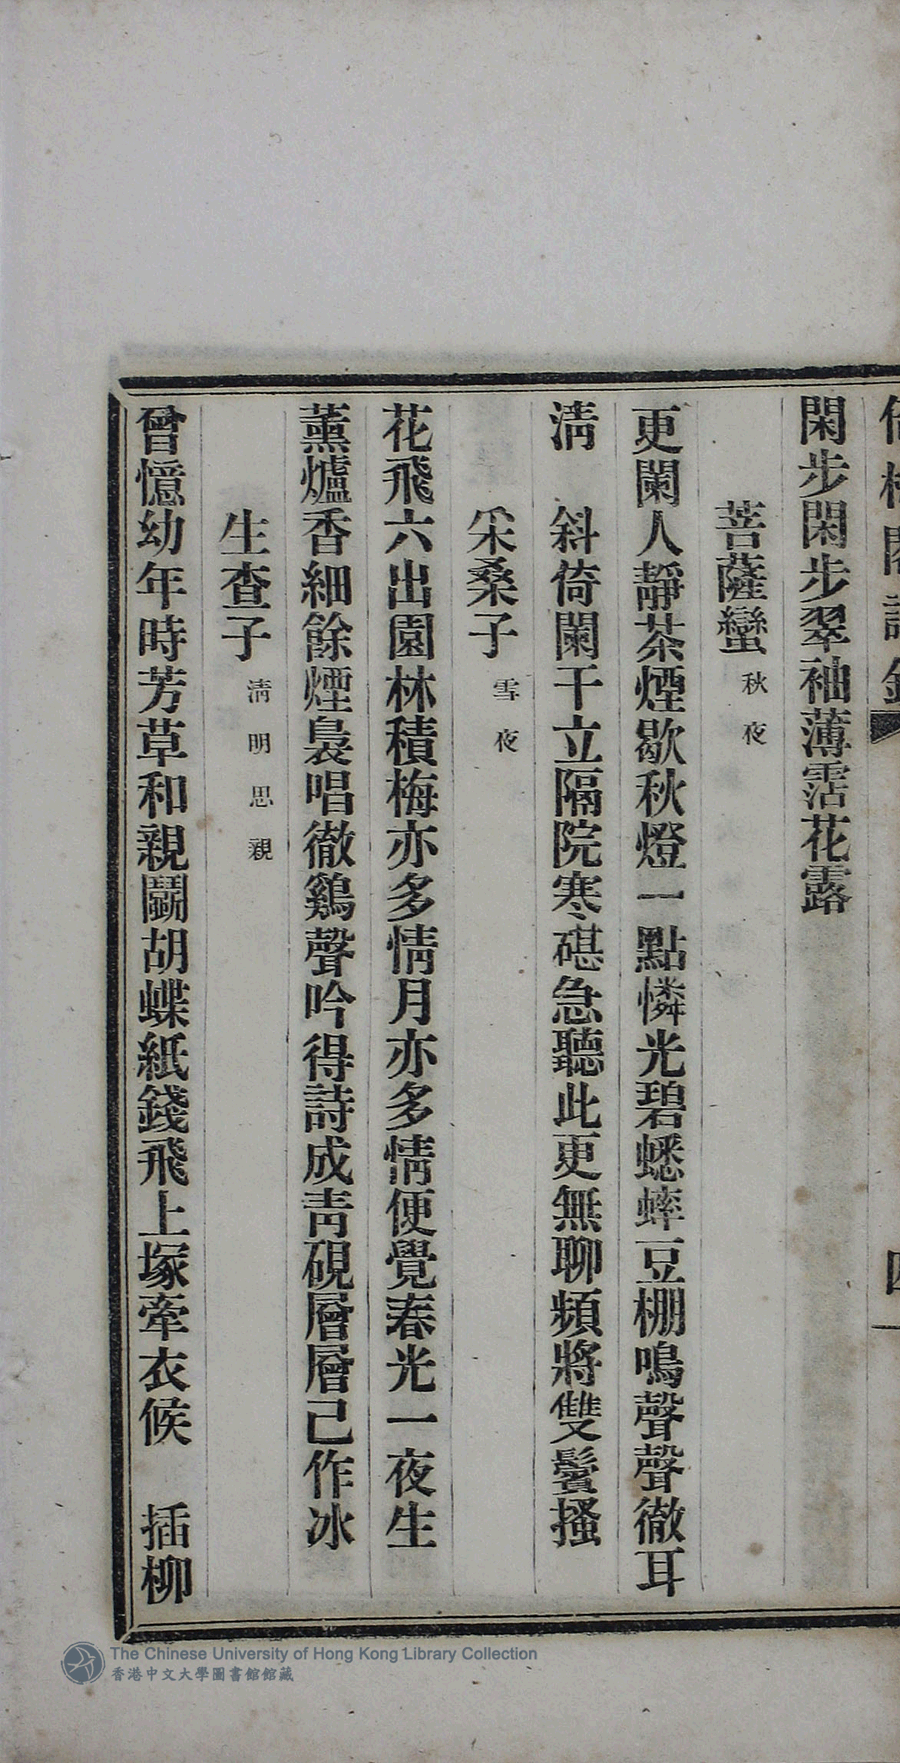 閑步閑步翠袖薄霑花露
菩薩蠻 秋夜
更闌人靜茶煙歇秋燈一點憐光碧蟋蟀豆棚鳴聲聲徹耳
淸　斜倚闌干立隔院寒碪急聽此更無聊頻將雙鬢搔
采桑子 雪夜
花飛六出園林積梅亦多情月亦多情便覺春光一夜生
薰爐香細餘煙裊唱徹鷄聲吟得詩成靑硯層層已作冰
生查子 淸明思親
曾憶幼年時芳草和親鬭胡蝶紙錢飛上塚牽衣候　插柳
The Chinese University of Hong Kong Library Collection
香港中文大學圖書館館藏